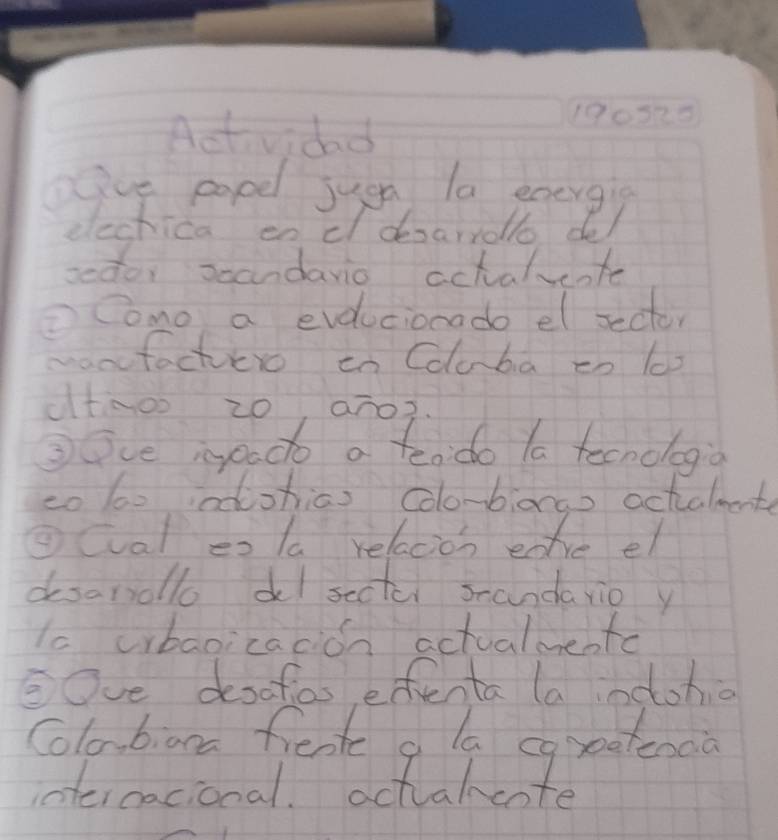 190525
Actividad
① Que papel juega la energia
electrica en el desarrollo del
sector secundario actualmente
② Como a evolucionado el sector
manufacturero en Colombia en los
ultimos 20 años.
③ Que impacto a tenido la tecnologia
en las industrias Colombianas actualmente
④ Cual es la relación entre el
desarrollo del sector secundario y
la urbanización actualmente
⑤ Que desafios enfrenta la industria
Colombiana frente a la competencia
internacional. actualmente